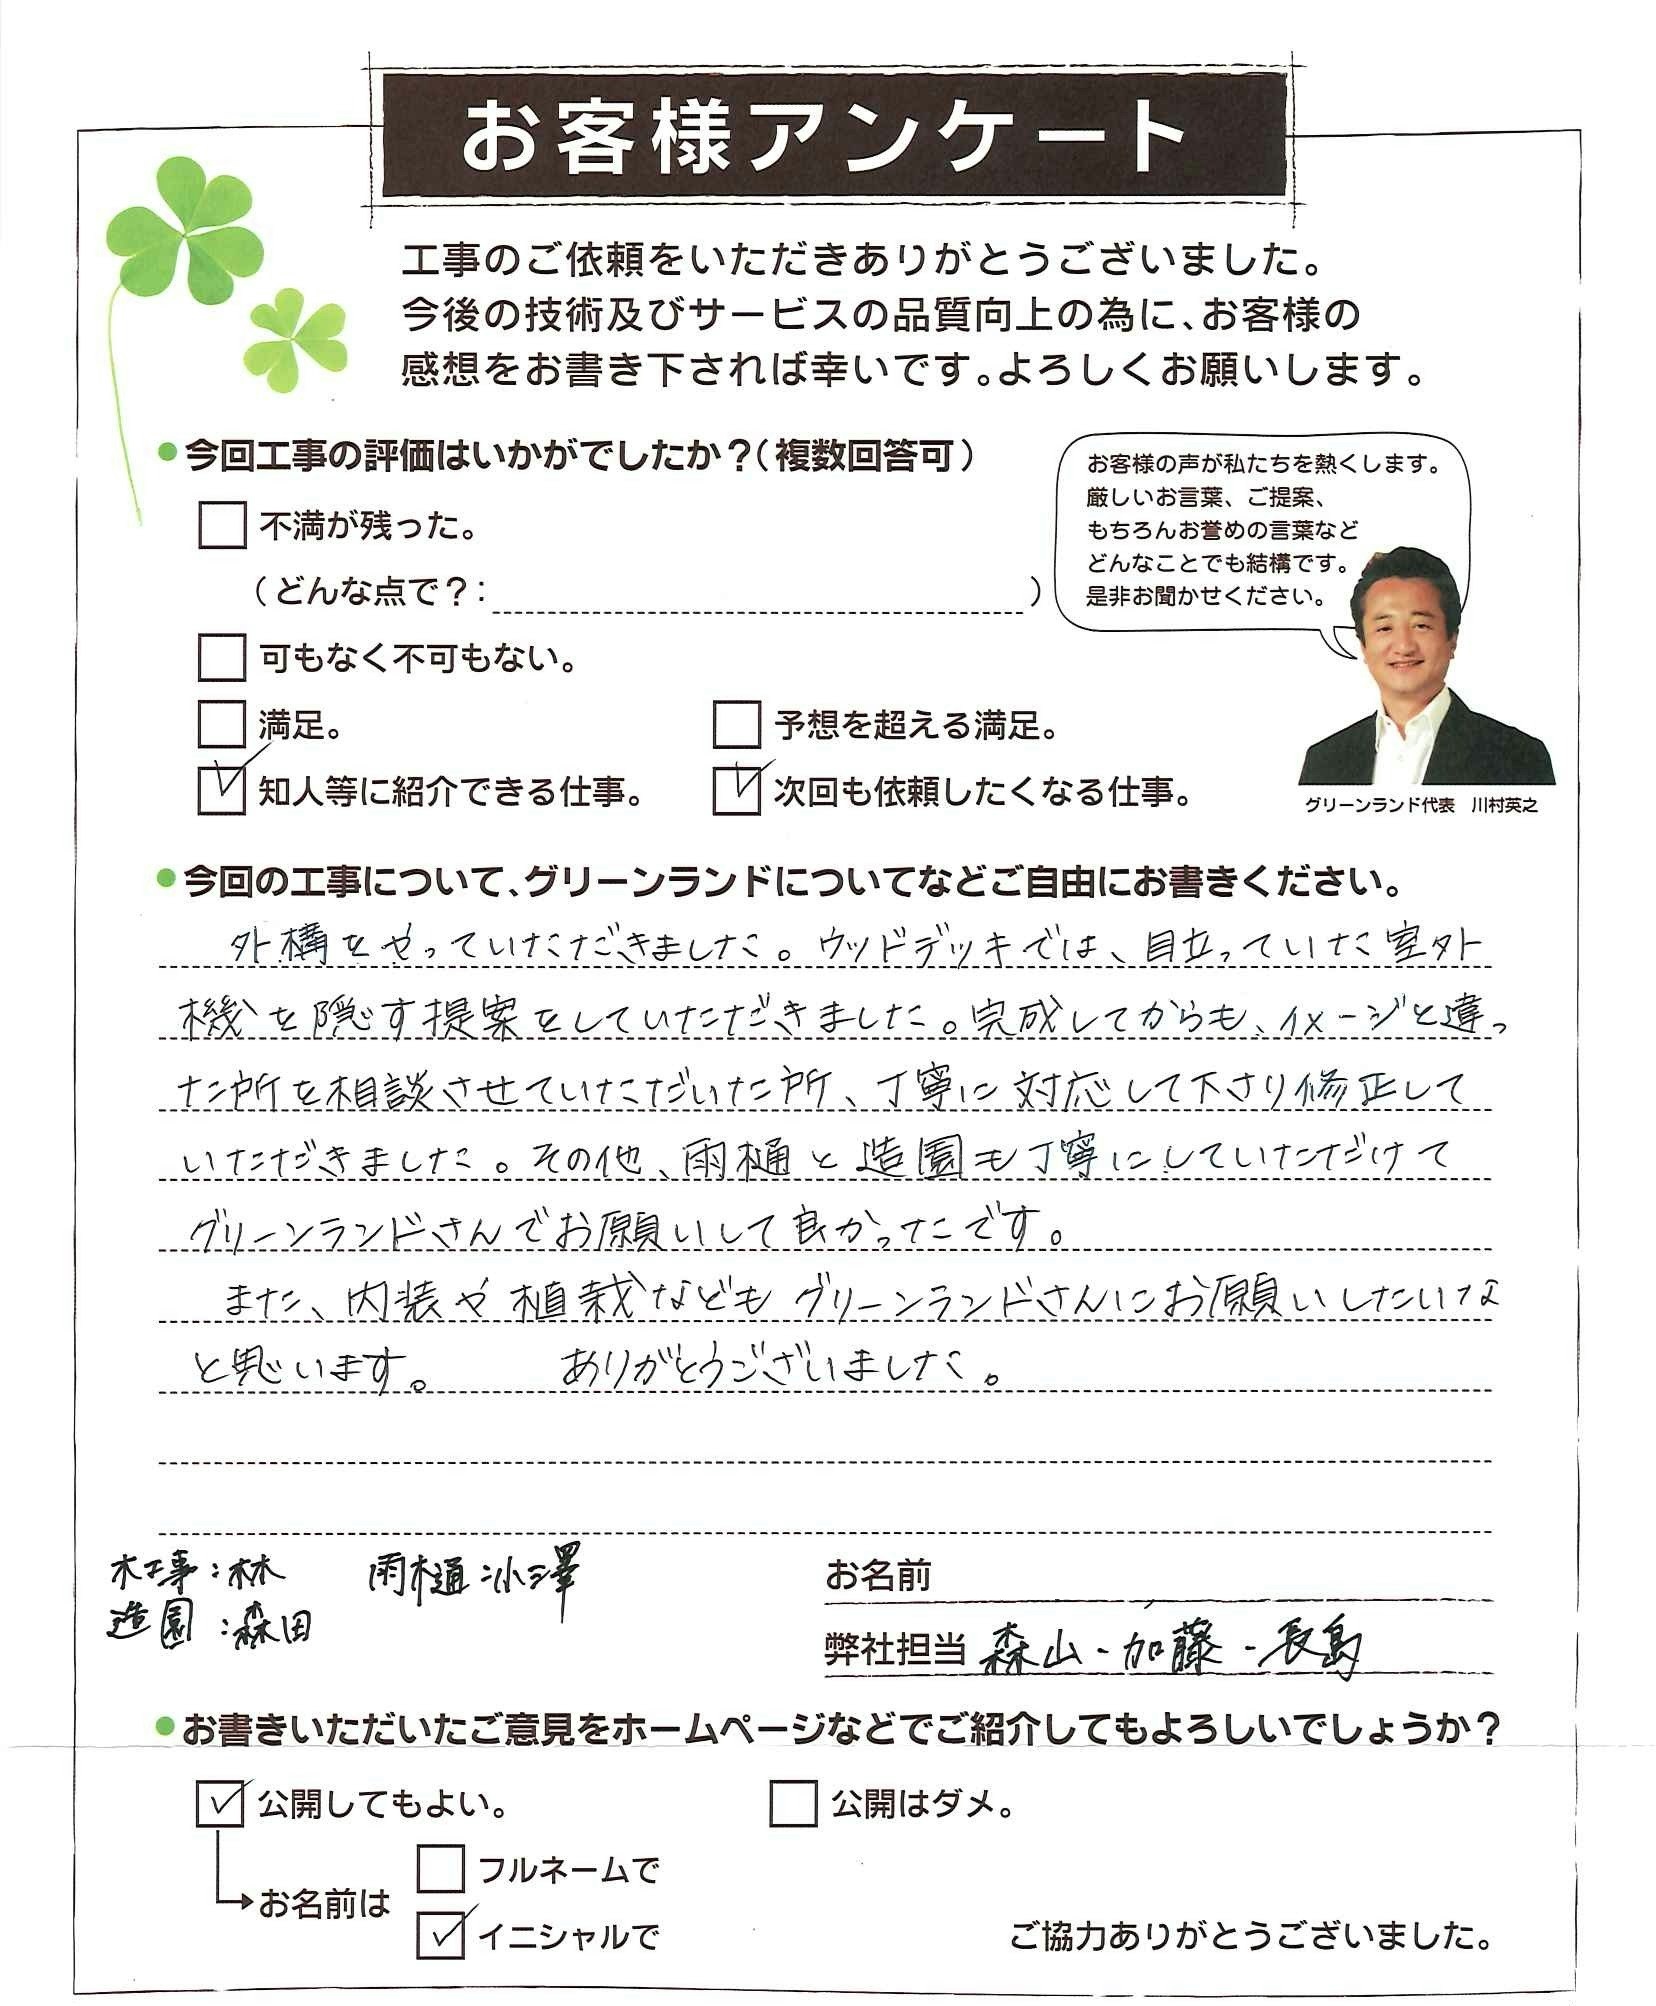 お客様アンケート
工事のご依頼をいただきありがとうございました。
今後の技術及びサービスの品質向上の為に、お客様の
感想をお書き下されば幸いです。よろしくお願いします。
●今回工事の評価はいかがでしたか？（複数回答可）
お客様の声が私たちを熱くします。
厳しいお言葉、ご提案、
もちろんお誉めの言葉など
どんなことでも結構です。
是非お聞かせください。
不満が残った。
（どんな点で？： ）
可もなく不可もない。
満足。 予想を超える満足。
知人等に紹介できる仕事。 次回も依頼したくなる仕事。
グリーンランド代表 川村英之
●今回の工事について、グリーンランドについてなどご自由にお書きください。
外構をやっていただきました。ウッドデッキでは、目立っていた室外
機を隠す提案をしていただきました。完成してからも、イメージと違っ
た所を相談させていただいた所、丁寧に対応して下さり修正して
いただきました。その他、雨樋と造園も丁寧にしていただけて
グリーンランドさんでお願いして良かったです。
また、内装や植栽などもグリーンランドさんにお願いしたいな
と思います。 ありがとうございました。
木工事：林 雨樋：小澤
造園：森田
お名前
弊社担当 森山・加藤・長島
●お書きいただいたご意見をホームページなどでご紹介してもよろしいでしょうか？
公開してもよい。 公開はダメ。
フルネームで
お名前は
イニシャルで
ご協力ありがとうございました。